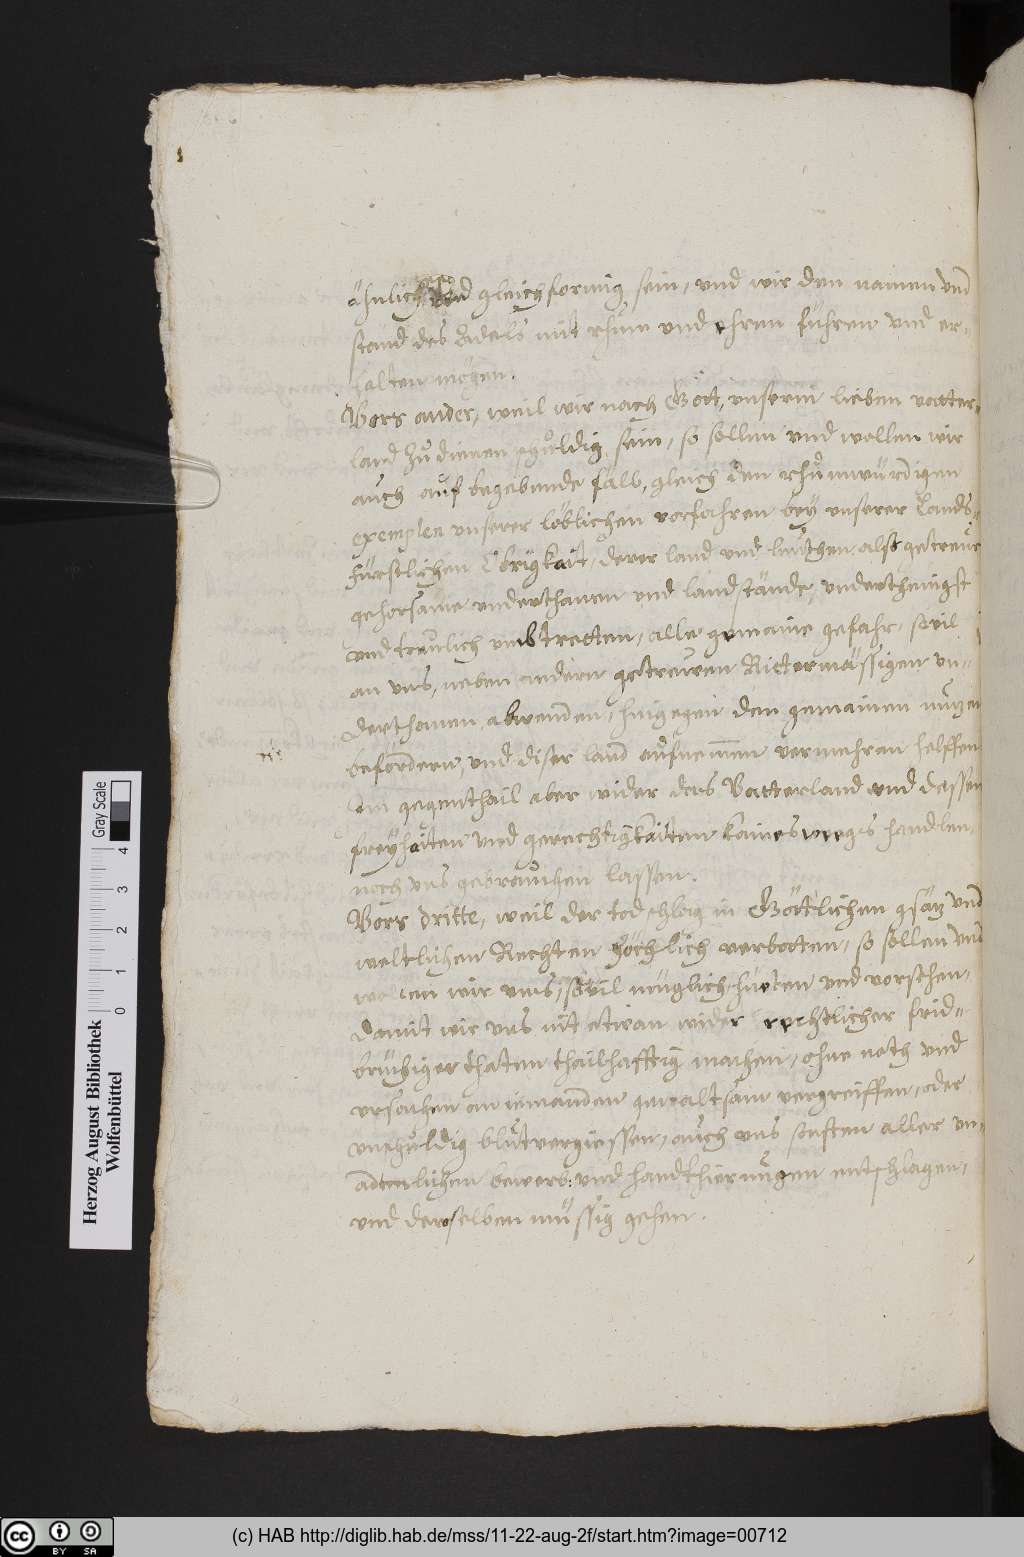 ähnlich und gleichformig sein, und wir den namen und
stand des Adels mit rhům und ehren führen und er-
halten mögen.
Vors ander, weil wir nach Gott, unserm lieben vatter-
land zů dienen schuldig sein, so sollen und wollen wir
auch auf begebende fäll, gleich den rhůmwürdigen
exemplen unserer löblichen vorfahren bey unserer Lands-
fürstlichen Obrigkait, derer land und leuthen, alss getreue
gehorsame underthanen und landstände, underthenigst
und treulich umbtretten, alle gemaine gefahr, sovil
an uns, neben andern getreuen Rittermässigen un-
derthanen abwenden, hingegen den gemainen nutzen
befördern, und diser land aufnemmen vermehren helffen
im gegenthail aber wider des Vatterland und dessen
freyhaiten und gerechtigkaiten kaines weegs handlen,
noch uns gebrauchen lassen.
Vors dritte, weil der todschlag in Göttlichen gsätz und
weltlichen Rechten höchlich verbotten, so sollen und
wollen wir uns, sovil müglich, hüeten und vorsehen,
damit wir uns nit etwan wider rechtlicher frid-
brüchiger thaten thailhafftig machen, ohne noth und
ursachen an iemanden gewaltsam vergreiffen, oder
unschuldig blůtvergiessen, auch uns sonsten aller un-
adenlichen bewerb: und handthierungen entschlagen,
und derselben müssig gehen.
Herzog August Bibliothek
Wolfenbüttel
Gray Scale
0 1 2 3 4
(c) HAB http://diglib.hab.de/mss/11-22-aug-2f/start.htm?image=00712
cc BY SA